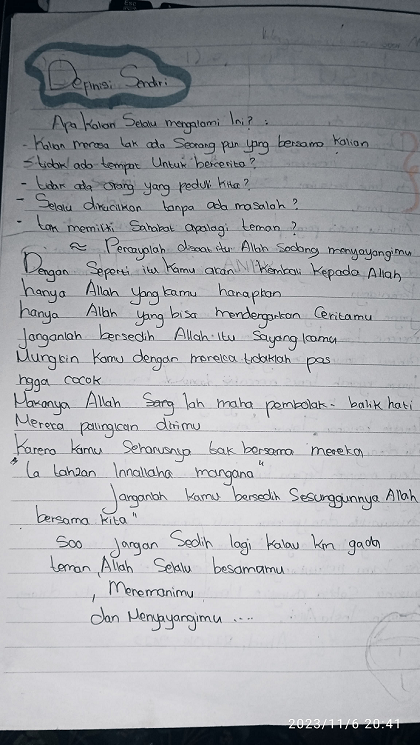 Definisi Sendiri
Apa kalian Selalu mengalami Ini? :
- Kalian merasa tak ada Seorang pun yang bersama kalian
- tidak ada tempat Untuk bercerita?
- tidak ada orang yang peduli kita?
- Selalu dikucilkan tanpa ada masalah?
- tak memiliki Sahabat apalagi teman?
≈ Percayalah disaat itu Allah Sedang menyayangimu
Dengan Seperti itu kamu akan kembali kepada Allah
hanya Allah yang kamu harapkan
hanya Allah yang bisa mendengarkan Ceritamu
Janganlah bersedih Allah itu Sayang kamu
Mungkin kamu dengan mereka tidaklah pas
ngga cocok
Makanya Allah Sang lah maha pembolak-balik hati
Mereka palingkan dirimu
Karena kamu Seharusnya tak bersama mereka
* "la tahzan Innallaha mangana"
Janganlah kamu bersedih Sesungguhnya Allah
bersama kita"
Soo jangan Sedih lagi kalau km gada
teman, Allah Selalu besamamu
, Menemanimu
dan Menyayangimu ....
2023/11/6 20:41